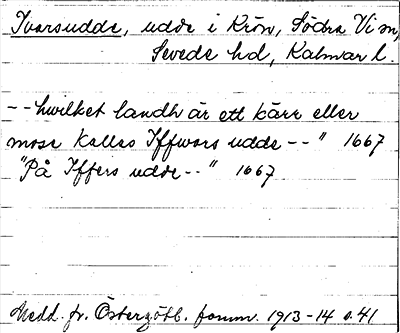 Ivarsudde, udde i Krön, Södra Vi sn,
Sevede hd, Kalmar l.
--hwilket landh är ett kärr eller
mose kallas Iffwars udde --" 1667
"På Iffers udde--" 1667.
Medd. fr. Östergötl. fornm. 1913-14 s. 41